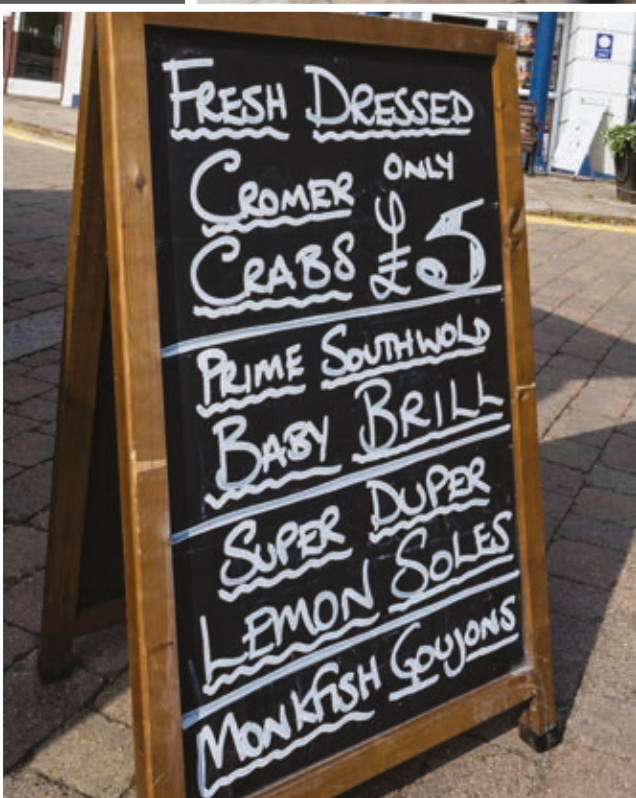 FRESH DRESSED
CROMER ONLY
CRABS £5
PRIME SOUTHWOLD
BABY BRILL
SUPER DUPER
LEMON SOLES
MONKFISH GOUJONS